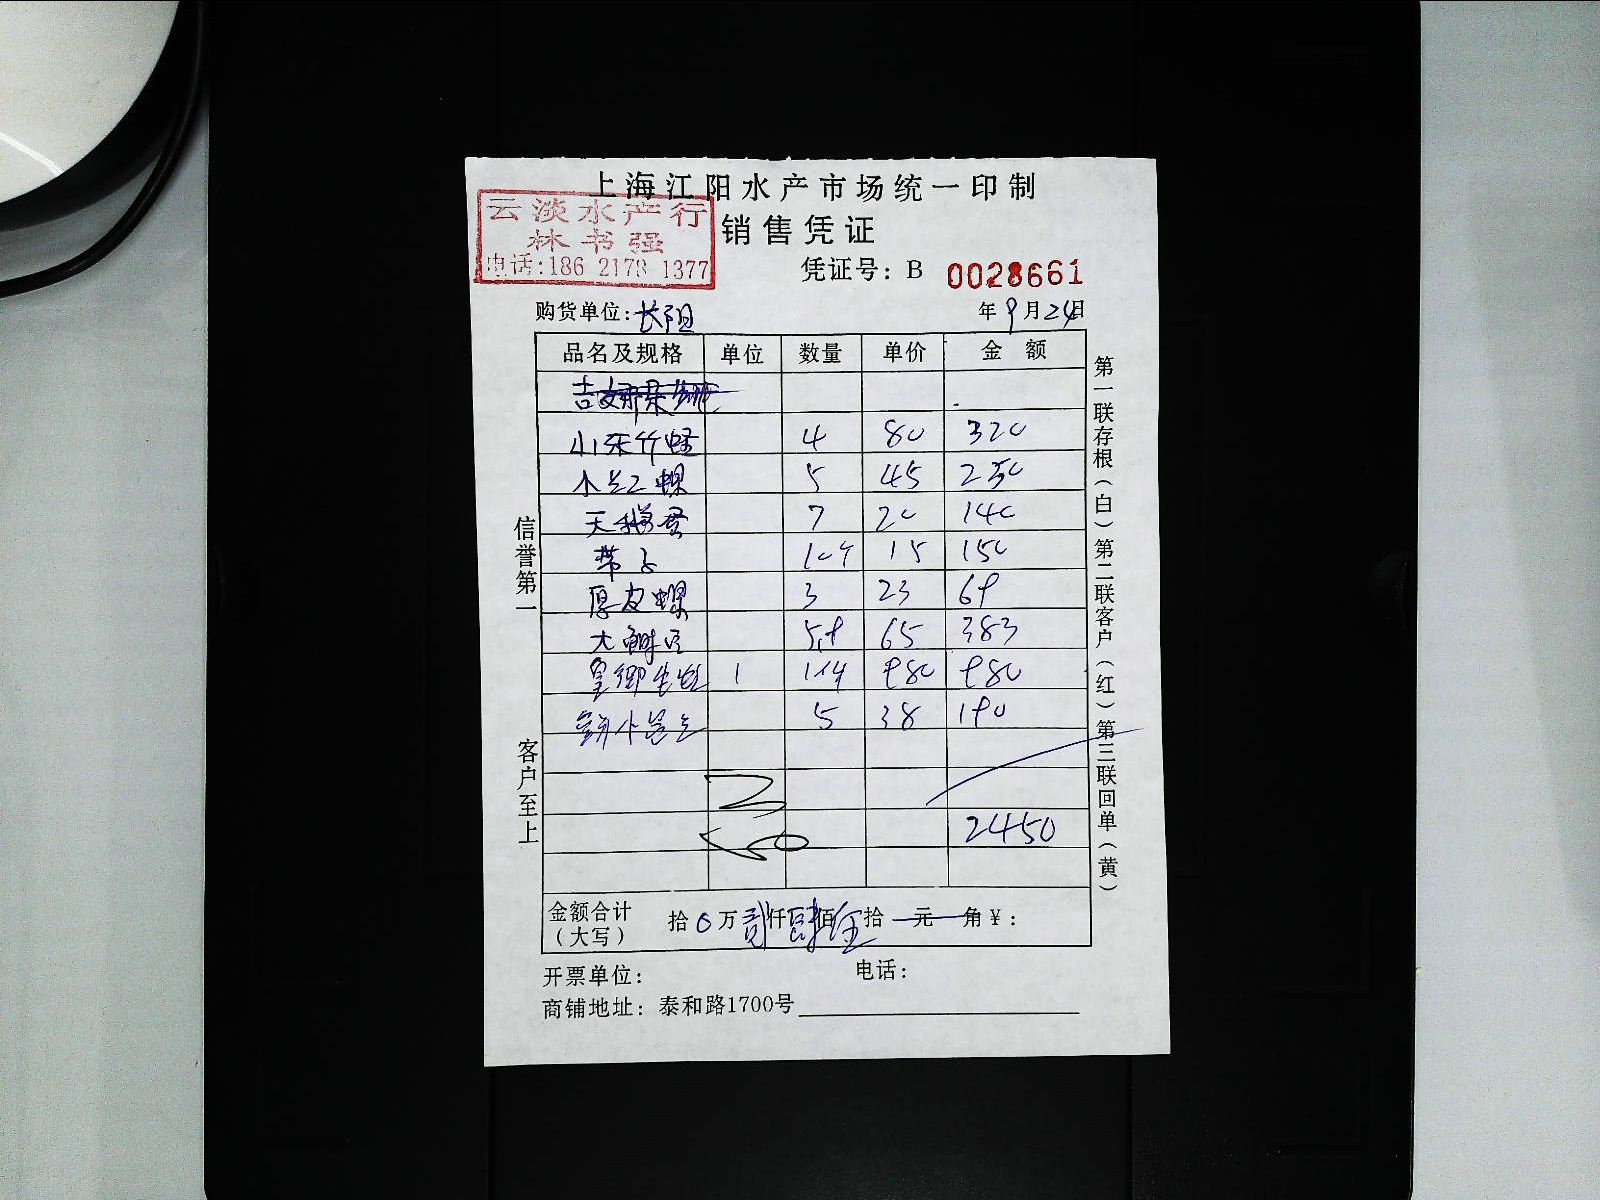 上海江阳水产市场统一印制
云淡水产行
林书强
电话:186 2178 1377
销售凭证
凭证号: B 0028661
购货单位: 长阳 年 9 月 24 日
品名及规格 单位 数量 单价 金额
山东竹蛏 4 80 320
小 螺 5 45 230
天 7 20 140
带子 10个 15 150
厚皮螺 3 23 69
大 5.9 65 383
皇 1 980 980
小 5 38 190
2450
金额合计(大写) 拾 0 万 贰 仟 肆 佰 伍 拾 元 角 ¥:
开票单位: 电话:
商铺地址: 泰和路1700号
信誉第一 客户至上
第一联存根(白)第二联客户(红)第三联回单(黄)